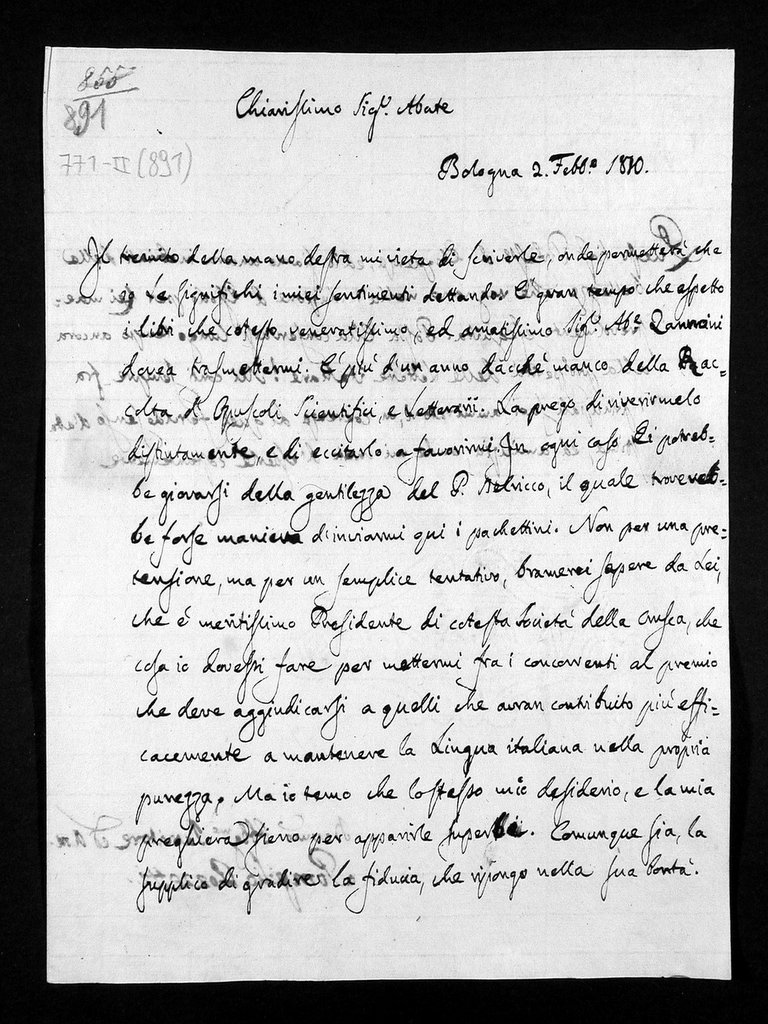 855
891
771-II (891)
Chiarissimo Sig.r Abate
Bologna 2. Febb.o 1810.
Il tremito della mano destra mi vieta di scriverle, onde permetterà che
io Le significhi i miei sentimenti dettando. È gran tempo che aspetto
i libri che cotesto veneratissimo, ed amatissimo Sig.r Ab.e Zannoni
dovea trasmettermi. È più d'un anno dacchè manco della Rac=
colta d'Opuscoli Scientifici, e Letterarii. La prego di riverirmelo
distintamente, e di eccitarlo a favorirmi. In ogni caso Ei potreb=
be giovarsi della gentilezza del P. , il quale troverreb=
be forse maniera d'inviarmi qui i pachettini. Non per una pre=
tensione, ma per un semplice tentativo, bramerei sapere da Lei,
che è meritissimo Presidente di cotesta Società della Crusca, che
cosa io dovessi fare per mettermi fra i concorrenti al premio
che deve aggiudicarsi a quelli che avran contribuito più effi=
cacemente a mantenere la Lingua italiana nella propria
purezza. Ma io temo che lo stesso mio desiderio, e la mia
preghiera sieno per apparirle superbi. Comunque sia, la
supplico di gradire la fiducia, che ripongo nella sua bontà.